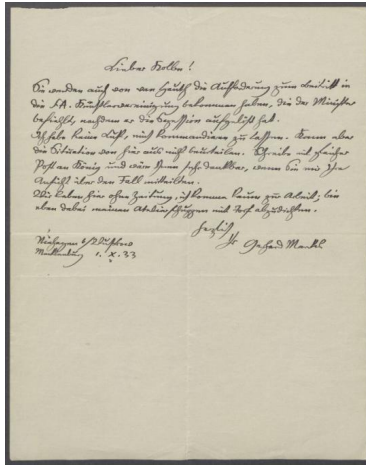 Lieber Kolbe!
Sie werden auch von von Hauth die Aufforderung zum Beitritt in
die S.A. Künstlervereinigung bekommen haben, die der Minister
befiehlt, nachdem er die Sezession aufgelöst hat.
Ich habe keine Lust, mich kommandieren zu lassen. Kann aber
die Situation von hier aus nicht beurteilen. Schreibe mit gleicher
Post an König und wäre Ihnen sehr dankbar, wenn Sie mir Ihre
Ansicht über den Fall mitteilten.
Wir leben hier ohne Zeitung, ich komme kaum zur Arbeit; bin
eben dabei meinen Atelierschuppen mit Torf abzudichten.
Herzlich
Ihr Gerhard Marcks
Niehagen b/Wustrow
Mecklenburg 1. X. 33